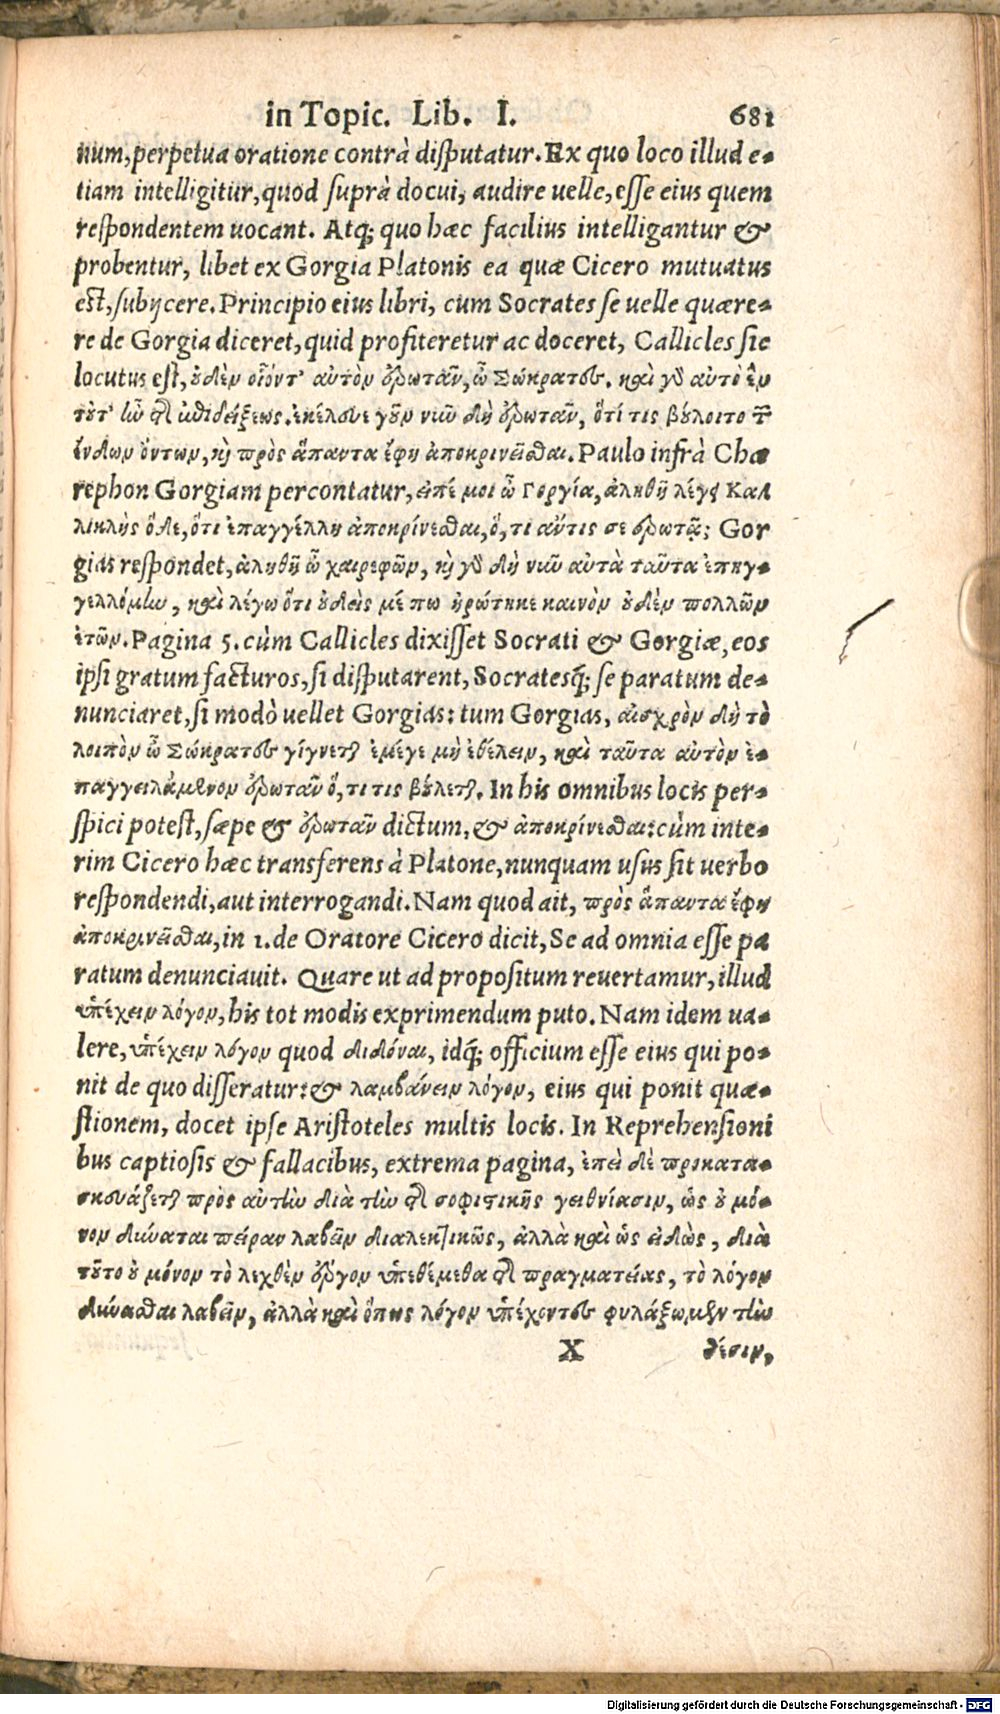 in Topic. Lib. I. 681
num, perpetua oratione contrà disputatur. Ex quo loco illud e-
tiam intelligitur, quod suprà docui, audire uelle, esse eius quem
respondentem uocant. Atq; quo hæc facilius intelligantur &
probentur, libet ex Gorgia Platonis ea quæ Cicero mutuatus
est, subijcere. Principio eius libri, cum Socrates se uelle quære-
re de Gorgia diceret, quid profiteretur ac doceret, Callicles sic
locutus est, οὐδὲν οἷόντ' αὐτὸν ἐρωτᾶν, ὦ Σώκρατες. καὶ γὸ αὐτὸ ἓν
τοῦτ' ἦν τῆς ἐπιδείξεως. ἐκέλευε γοῦν νιῦ δὴ ἐρωτᾶν, ὅτί τις βούλοιτο τῶν
ἔνδων ὄντων, κὴ πρὸς ἅπαντα ἔφη ἀποκρινεῖσθαι. Paulo infrà Chæ
rephon Gorgiam percontatur, εἰπέ μοι ὦ Γοργία, ἀληθῆ λέγει Καλ
λικλῆς ὅδε, ὅτι ἐπαγγέλλη ἀποκρίνεσθαι, ὅ, τι αὔτις σε ἐρωτᾷ; Gor
gias respondet, ἀληθῆ ὦ χαιρεφῶν, κὴ γὸ δὴ νιῦ αὐτὰ ταῦτα ἐπηγ-
γελλόμην, καὶ λέγω ὅτι οὐδείς μέ πω ἠρώτηκε καινὸν οὐδὲν πολλῶν
ἐτῶν. Pagina 5. cùm Callicles dixisset Socrati & Gorgiæ, eos
ipsi gratum facturos, si disputarent, Socratesq; se paratum de-
nunciaret, si modò uellet Gorgias: tum Gorgias, αἰσχρὸν δὴ τὸ
λοιπὸν ὦ Σώκρατες γίγνεται ἐμέγε μὴ ἐθέλειν, καὶ ταῦτα αὐτὸν ἐ-
παγγειλάμενον ἐρωτᾶν ὅ, τι τις βούλεται. In his omnibus locis per-
spici potest, sæpe & ἐρωτᾶν dictum, & ἀποκρίνεσθαι: cùm inte-
rim Cicero hæc transferens à Platone, nunquam usus sit uerbo
respondendi, aut interrogandi. Nam quod ait, πρὸς ἅπαντα ἔφη
ἀποκρινεῖσθαι, in 1. de Oratore Cicero dicit, Se ad omnia esse pa
ratum denunciauit. Quare ut ad propositum reuertamur, illud
ὑπέχειν λόγον, his tot modis exprimendum puto. Nam idem ua-
lere, ὑπέχειν λόγον quod διδόναι, idq; officium esse eius qui po-
nit de quo disseratur: & λαμβάνειν λόγον, eius qui ponit quæ-
stionem, docet ipse Aristoteles multis locis. In Reprehensioni
bus captiosis & fallacibus, extrema pagina, ἐπεὶ δὲ προκατα-
σκευάζεται πρὸς αὐτὴν διὰ τὴν τῆς σοφιστικῆς γειθνίασιν, ὡς οὐ μό-
νον δύναται πεῖραν λαβεῖν διαλεκτικῶς, ἀλλὰ καὶ ὡς εἰδὼς, διὰ
τοῦτο οὐ μόνον τὸ λεχθὲν ἔργον ὑπεθέμεθα τῆς πραγματείας, τὸ λόγον
δύνασθαι λαβεῖν, ἀλλὰ καὶ ὅπως λόγον ὑπέχοντες φυλάξωμεν τὴν
X θέσιν,
Digitalisierung gefördert durch die Deutsche Forschungsgemeinschaft - DFG